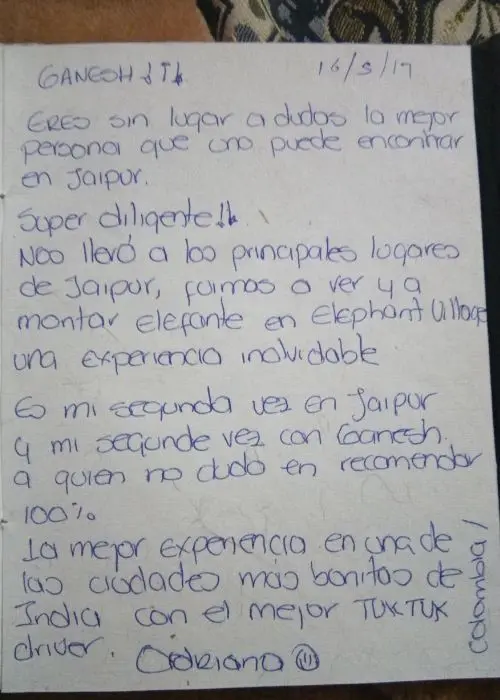 GANESH 16/3/17
ERES sin lugar a dudas la mejor
persona que uno puede encontrar
en Jaipur.
Super diligente!!
Nos llevó a los principales lugares
de Jaipur, fuimos a ver y a
montar elefante en Elephant Village
una experiencia inolvidable
Es mi segunda vez en Jaipur
y mi segunde vez con Ganesh.
a quien no dudo en recomendar
100%
La mejor experiencia en una de
las ciudades más bonitas de
India con el mejor TUK TUK
driver.
Colombia /